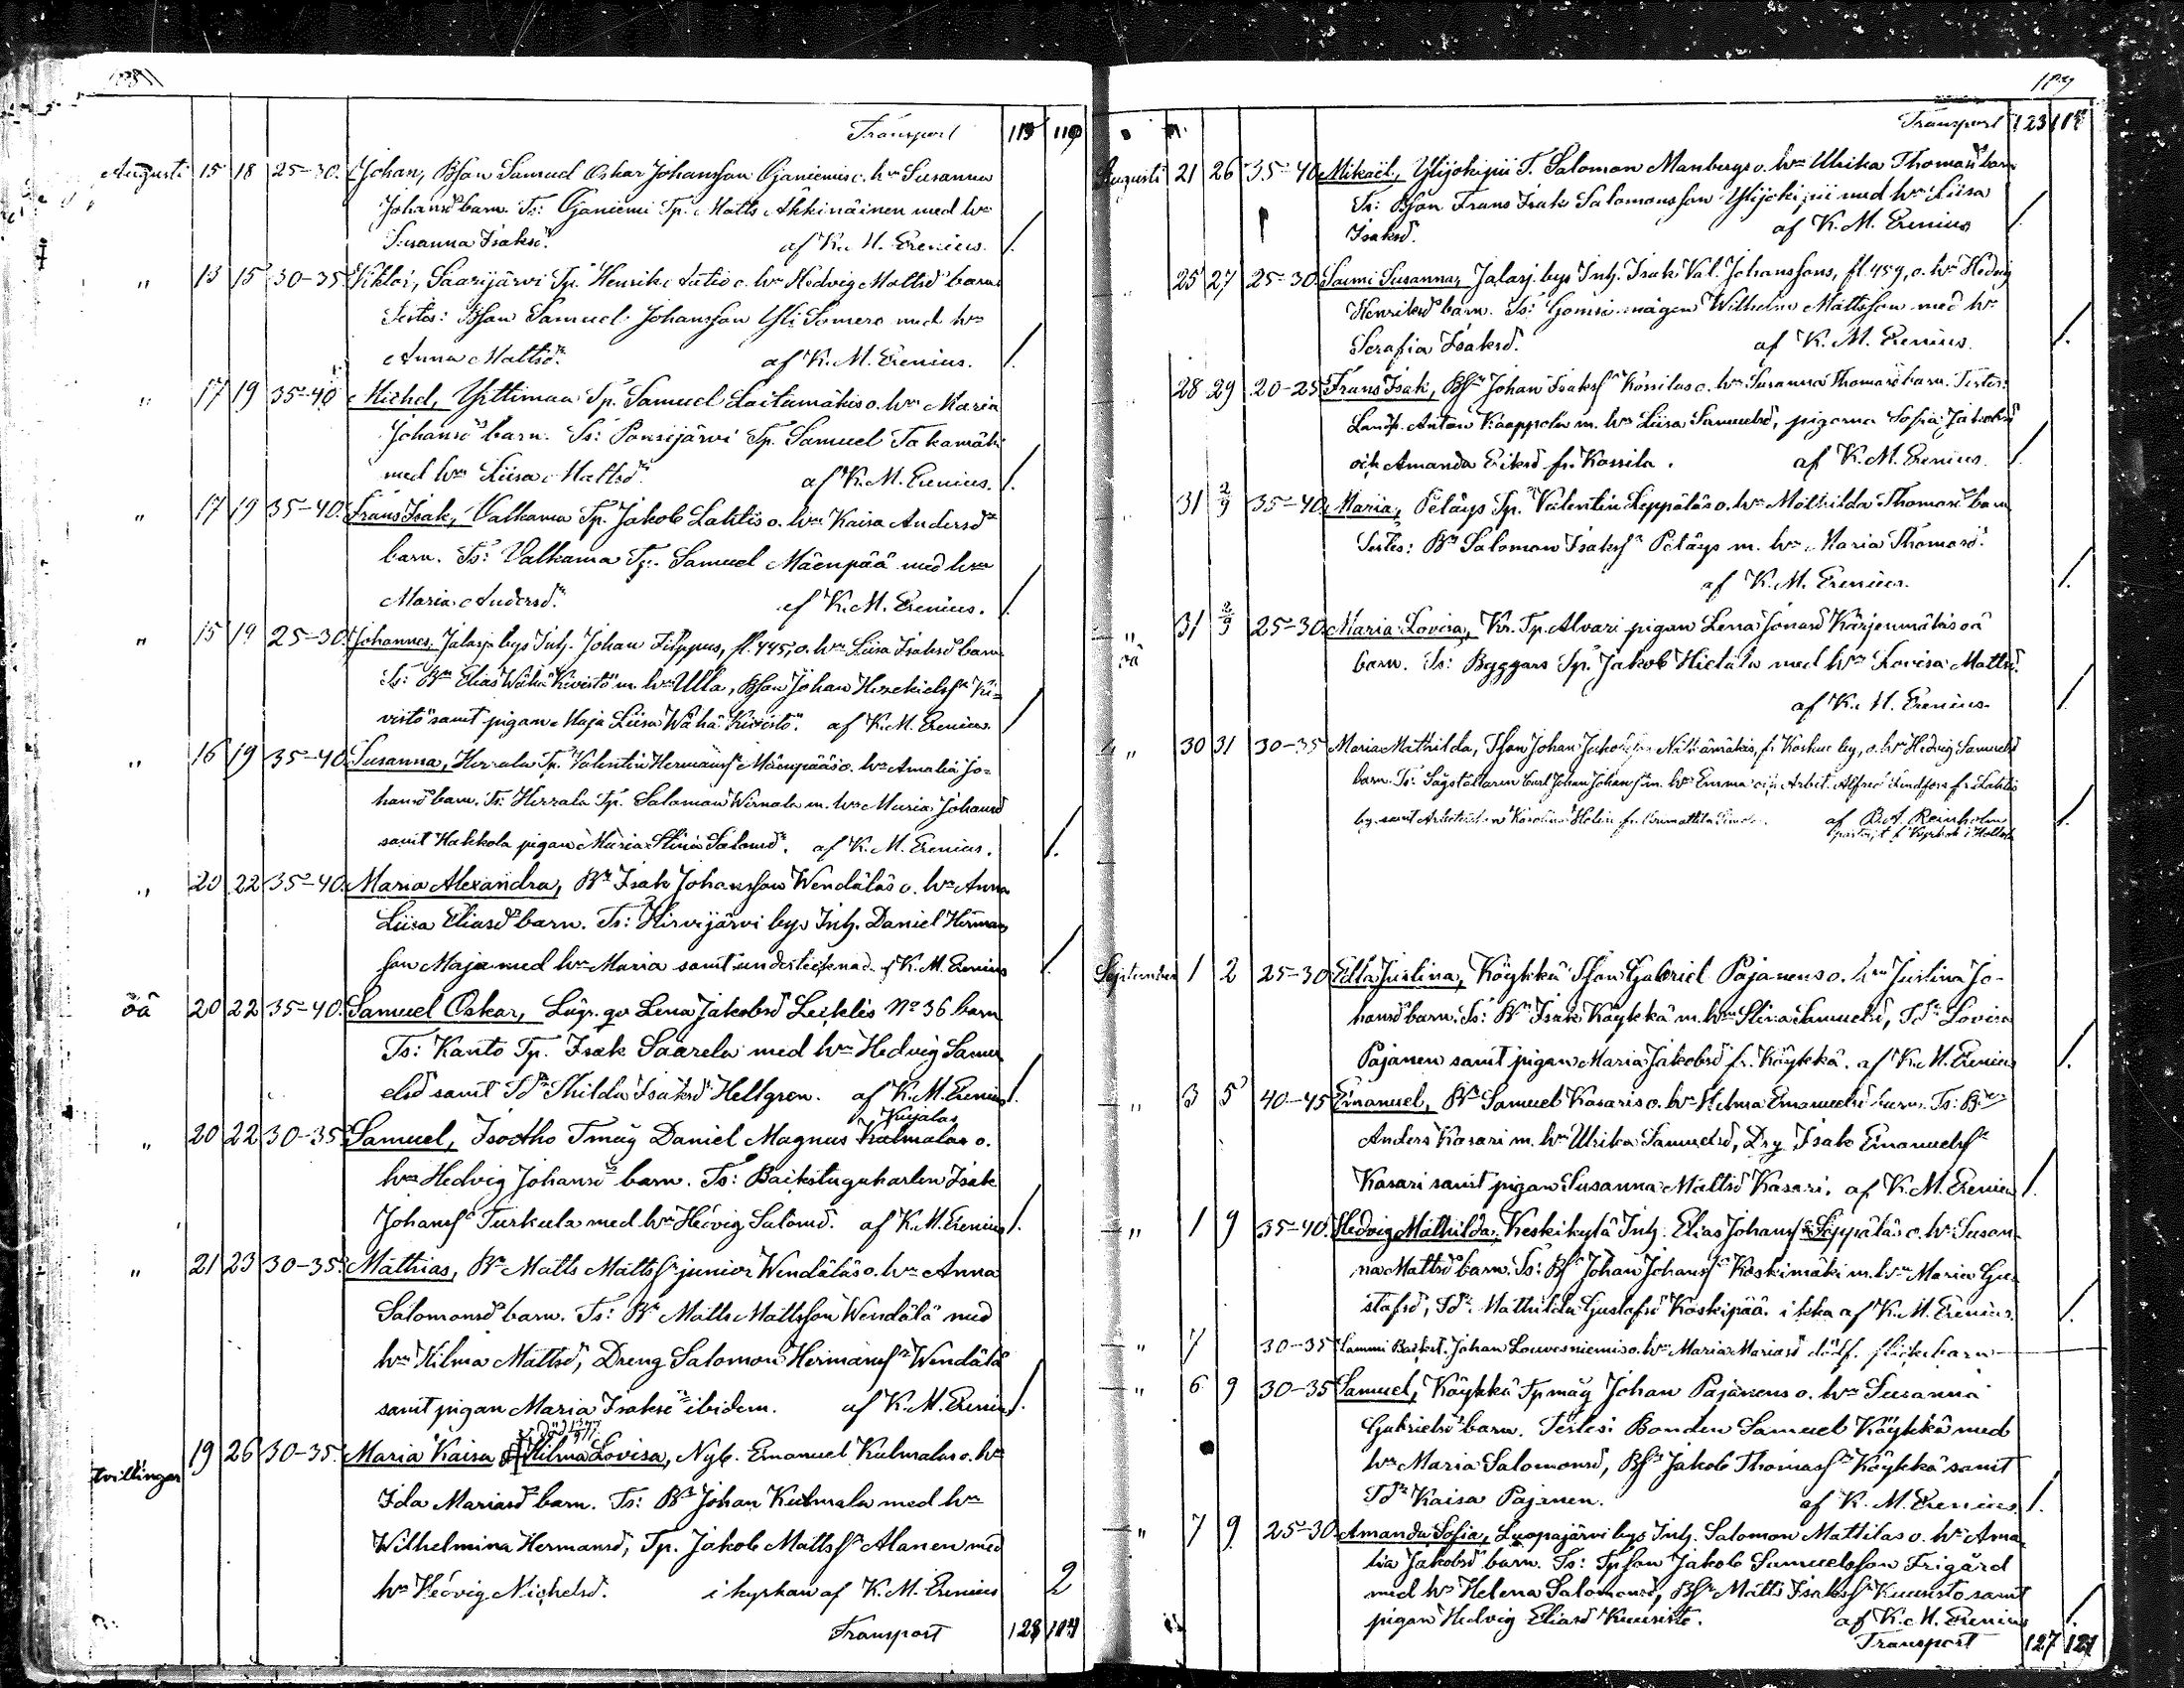 Transport 115 119
Augusti 15 18 25-30. Johan, Bson Samuel Oskar Johansson Ojaniemis o. hn Susanna
Johansds barn. Ts: Ojaniemi Tp. Matts Åkkinäinen med hn
Susanna Isaksd. af K. M. Erenius. /.
" 13 15 30-35 Viktor, Saarijärvi Tp. Henrik o. hn Hedvig Mattsds barn
Testes: Bson Samuel Johansson Yli Somero med hn
Anna Mattsd. af K. M. Erenius. /.
" 17 19 35-40 Michel, Yttimaa Tp. Samuel Laitamäkis o. hn Maria
Johansds barn. Ts: Ponsijärvi Tp. Samuel Takamäki
med hn Liisa Mattsd. af K. M. Erenius. /.
" 17 19 35-40. Frans Isak, Valkama Tp. Jakob Lahtis o. hn Kaisa Andersds
barn. Ts: Valkama Tp. Samuel Mäenpää med hn
Maria Andersd. af K. M. Erenius. /.
" 15 19 25-30. Johannes, Jalasj. bys Inh. Johan Filppus, fl. 445, o. hn Liisa Isaksds barn
Ts: Bn Elias Wähä Kivistö m. hn Ulla, Bson Johan Hesekielss Ki=
vistö samt pigan Maja Liisa Wähä Kivistö. af K. M. Erenius. /
" 16 19 35-40 Susanna, Herrala Tp. Valentin Hermanss Mäenpääs o. hn Amalia Jo=
hansds barn. Ts: Herrala Tp. Salomon Wirnala m. hn Maria Johansd
samt Hakkola pigan Maria Stina Salomd. af K. M. Erenius. /.
" 20 22 35-40. Maria Alexandra, Bn Isak Johansson Wendäläs o. hn Anna
Liisa Eliasds barn. Ts: Hirvijärvi bys Inh. Daniel Herman
son Maja med hn Maria samt undertecknad af K. M. Erenius /.
oä 20 22 35-40. Samuel Oskar, Lösr. qv Lena Jakobsd Lecklis No 36 barn
Ts: Kanto Tp. Isak Saarela med hn Hedvig Samu
elsd samt Td Thilda Isaksd Hellgren. af K. M. Erenius /.
Kujalas
" 20 22 30-35 Samuel, Isootho Tmåg Daniel Magnus Kulmalas o.
hn Hedvig Johansds barn. Ts: Backstugukarlen Isak
Johanss Turkula med hn Hedvig Salomd. af K. M. Erenius /.
" 21 23 30-35 Mathias, Bn Matts Mattss junior Wendäläs o. hn Anna
Salomonsds barn. Ts: Bn Matts Mattsson Wendälä med
hn Hilma Mattsd, Dreng Salomon Hermanss Wendälä
samt pigan Maria Isaksd ibidem. af K. M. Erenius /.
tvillingar 19 26 30-35 Maria Kaisa o Hilma Lovisa, Nyb. Emanuel Kulmalas o. hn
Ida Mariasds barn. Ts: Bn Johan Kulmala med hn
Wilhelmina Hermansd, Tp. Jakob Mattss Alanen med
hn Hedvig Michelsd. i kyrkan af K. M. Erenius 2
Transport 123
Transport 123
Augusti 21 26 35-40 Mikaël, Ylijokipii T. Salomon Manbergs o. hn Ulrika Thomasds barn
Ts: Bson Frans Isak Salomonsson Ylijokipii med hn Liisa
Isaksd. af K. M. Erenius /.
25 27 25-30. Saimi Susanna, Jalasj. bys Inh. Isak Val. Johanssons, fl. 459, o. hn Hedvig
Henriksds barn. Ts: Gomsi mågen Wilhelm Mattsson med hn
Serafia Isaksd. af K. M. Erenius. /.
28 29 20-25 Frans Isak, Bsn Johan Isakss Kossilas o. hn Susanna Thomasds barn. Testes:
Landb. Anton Kaappola m. hn Liisa Samuelsd, pigorna Sofia Jakobsd
och Amanda Eriksd fr. Kossila. af K. M. Erenius. /.
31 2/9 35-40. Maria, Peläys Tp. Valentin Leppäläs o. hn Mathilda Thomasds barn
Testes: Bn Salomon Isakss Peläys m. hn Maria Thomasd.
af K. M. Erenius. /.
" oä 31 2/9 25-30. Maria Lovisa, Kr. Tp. Alvari pigan Lena Jonasd Kärjenmäkis oä
barn. Ts: Byggars Tp. Jakob Hietala med hn Lovisa Mattsd.
af K. M. Erenius. /.
" 30 31 30-35 Maria Mathilda, Tson Johan Jakobsson fr. Koskue by, o. hn Hedvig Samuelsd
barn. Ts: Carl Johan Johansson m. hn Emma och Arbet. Alfred Lindfors fr. Lahtis
by samt Karolina Helin af Reinholm /.
September 1 2 25-30 Ella Justina, Köykkä Tson Gabriel Pajanens o. hn Justina Jo-
hansds barn. Ts: Bn Isak Köykkä m. hn Stina Samuelsd, Td Lovisa
Pajanen samt pigan Maria Jakobsd fr. Köykkä. af K. M. Erenius /.
" 3 5 40-45 Emanuel, Bn Samuel Kasaris o. hn Hilma Emanuelsds barn. Ts: Bn
Anders Kasari m. hn Ulrika Samuelsd, Drg Isak Emanuelss
Kasari samt pigan Susanna Mattsd Kasari. af K. M. Erenius /.
" 1 9 35-40. Hedvig Mathilda, Keskikylä Inh. Elias Johanss Seppäläs o. hn Susan-
na Mattsds barn. Ts: Bs Johan Johanss Koskimäki m. hn Maria Gu-
stafsd, Td Mathilda Gustafsd Koskipää. i kka af K. M. Erenius. /.
" 7 30-35 Lammi Backst. Johan Louvesniemis o. hn Maria Mariasd dödf. flickebarn
" 6 9 30-35 Samuel, Köykkä Tpmåg Johan Pajanens o. hn Susanna
Gabrielsds barn. Testes: Bonden Samuel Köykkä med
hn Maria Salomonsd, Bs Jakob Thomass Köykkä samt
Td Kaisa Pajanen. af K. M. Erenius. /.
" 7 9 25-30. Amanda Sofia, Luopajärvi bys Inh. Salomon Mattilas o. hn Ama
lia Jakobsds barn. Ts: Tpson Jakob Samuelsson Frigård
med hn Helena Salomonsd, Bs Matts Isakss Kuusisto samt
pigan Hedvig Eliasd Kuusisto. af K. M. Erenius /.
Transport 127 121